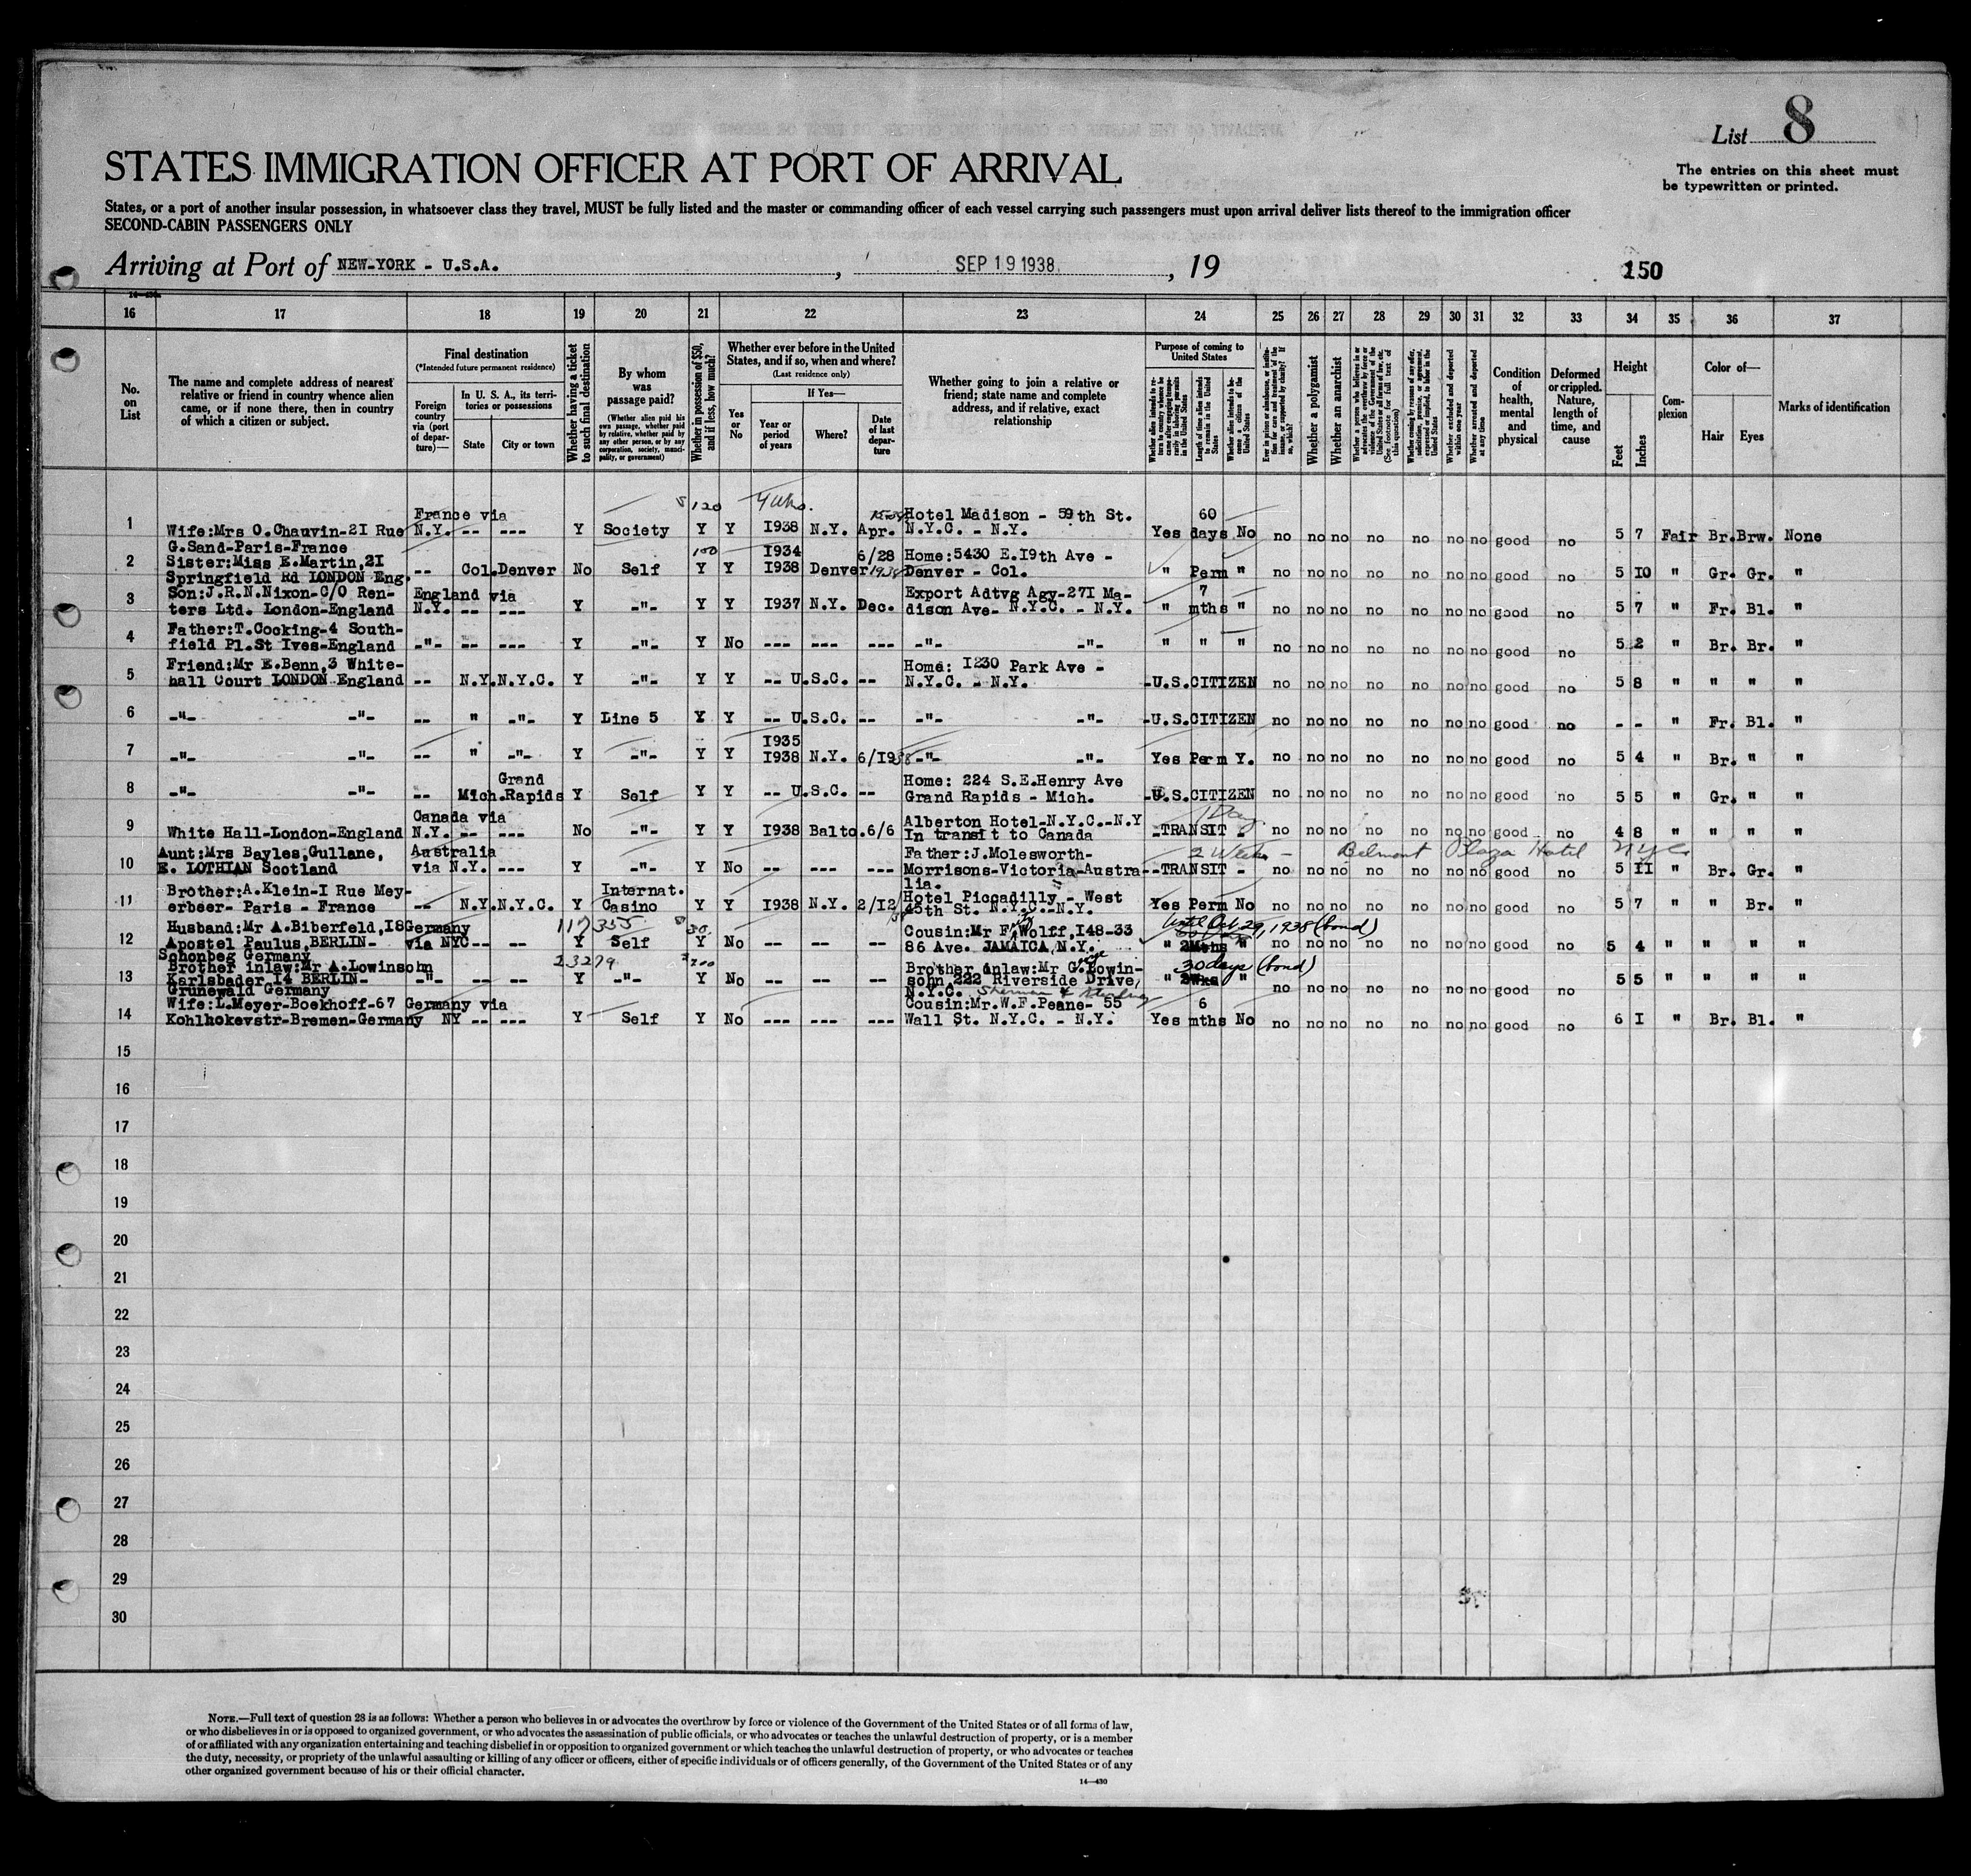 List 8
STATES IMMIGRATION OFFICER AT PORT OF ARRIVAL
The entries on this sheet must
be typewritten or printed.
States, or a port of another insular possession, in whatsoever class they travel, MUST be fully listed and the master or commanding officer of each vessel carrying such passengers must upon arrival deliver lists thereof to the immigration officer
SECOND-CABIN PASSENGERS ONLY
Arriving at Port of NEW-YORK - U.S.A. , SEP 19 1938 , 19
150
16 17 18 19 20 21 22 23 24 25 26 27 28 29 30 31 32 33 34 35 36 37
No. on List
The name and complete address of nearest relative or friend in country whence alien came, or if none there, then in country of which a citizen or subject.
Final destination
(*Intended future permanent residence)
Foreign country via (port of departure)—
In U. S. A., its territories or possessions
State
City or town
Whether having a ticket to such final destination
By whom was passage paid?
(Whether alien paid his own passage, whether paid by relative, whether paid by any other person, or by any corporation, society, municipality, or government)
Whether in possession of $50, and if less, how much?
Whether ever before in the United States, and if so, when and where?
(Last residence only)
Yes or No
If Yes—
Year or period of years
Where?
Date of last departure
Whether going to join a relative or friend; state name and complete address, and if relative, exact relationship
Purpose of coming to United States
Length of time alien intends to remain in the United States
Whether alien intends to become a citizen of the United States
Whether a polygamist
Whether an anarchist
Whether excluded and deported within one year
Whether arrested and deported at any time
Condition of health, mental and physical
Deformed or crippled. Nature, length of time, and cause
Height
Feet
Inches
Complexion
Color of—
Hair
Eyes
Marks of identification
France via $120 4 wks. Hotel Madison - 59th St. 60
1 Wife:Mrs O.Chauvin-2I Rue N.Y. -- --- Y Society Y Y I938 N.Y. Apr. N.Y.C. - N.Y. Yes days No no no no no no no no good no 5 7 Fair Br. Brw. None
G.Sand-Paris-France
2 Sister:Miss E.Martin,2I 100 I934 6/28 Home:5430 E.I9th Ave -
Springfield Rd LONDON Eng. -- Col. Denver No Self Y Y I938 Denver 1938 Denver - Col. " Perm " no no no no no no no good no 5 IO " Gr. Gr. "
3 Son:J.R.N.Nixon-C/O Ren- England via Export Adtvg Agy-27I Ma- 7
ters Ltd. London-England N.Y. -- --- Y -"- Y Y I937 N.Y. Dec. dison Ave- N.Y.C. - N.Y. " mths " no no no no no no no good no 5 7 " Fr. Bl. "
4 Father:T.Cocking-4 South-
field Pl.St Ives-England -"- -- --- Y -"- Y No --- --- --- -"- -"- " " " no no no no no no no good no 5 2 " Br. Br. "
5 Friend:Mr E.Benn,3 White- Home: I230 Park Ave -
hall Court LONDON England -- N.Y. N.Y.C. Y -"- Y Y -- U.S.C. -- N.Y.C. - N.Y. -U.S.CITIZEN no no no no no no no good no 5 8 " " " "
6 -"- -"- -- " -"- Y Line 5 Y Y -- U.S.C. -- -"- -"- -U.S.CITIZEN no no no no no no no good no - - " Fr. Bl. "
I935
7 -"- -"- -- " -"- Y -"- Y Y I938 N.Y. 6/1938 -"- -"- Yes Perm Y. no no no no no no no good no 5 4 " Br. " "
Grand Home: 224 S.E.Henry Ave
8 -"- -"- -- Mich. Rapids Y Self Y Y -- U.S.C. -- Grand Rapids - Mich. -U.S.CITIZEN no no no no no no no good no 5 5 " Gr. " "
Canada via Alberton Hotel-N.Y.C.-N.Y 1 Day
9 White Hall-London-England N.Y. -- --- No -"- Y Y I938 Balto. 6/6 In transit to Canada -TRANSIT - no no no no no no no good no 4 8 " " " "
10 Aunt:Mrs Bayles,Gullane, Australia Father:J.Molesworth- 2 Weeks - Belmont Plaza Hotel N.Y.C.
E. LOTHIAN Scotland via N.Y. --- Y -"- Y No -- -- --- Morrisons-Victoria-Austra- -TRANSIT - no no no no no no no good no 5 II " Br. Gr. "
lia.
11 Brother:A.Klein-I Rue Mey- Internat. Hotel Piccadilly - West
erbeer- Paris - France -- N.Y. N.Y.C. Y Casino Y Y I938 N.Y. 2/12/38 45th St. N.Y.C.-N.Y. Yes Perm No no no no no no no no good no 5 7 " " Br. "
12 Husband:Mr A.Biberfeld,I8 Germany 117355 $50. Cousin:Mr F.Wolff,I48-33 Until Oct 29, 1938 (bond)
Apostel Paulus,BERLIN- via NYC -- -- Y Self Y No -- -- -- 86 Ave. JAMAICA,N.Y. " 2Mths " no no no no no no no good no 5 4 " " " "
Schonbeg Germany
13 Brother inlaw:Mr A.Lowinsohn 23279 $200 Brother inlaw:Mr G.Lowin- 30 days (bond)
Karlsbader I4 BERLIN- -"- -- -- Y -"- Y No -- -- -- sohn,222 Riverside Drive, " 2Wks " no no no no no no no good no 5 5 " " " "
Grunewald Germany N.Y.C.
14 Wife:L.Meyer-Boekhoff-67 Germany via Cousin:Mr.W.F.Peane- 55 6
Kohlhokevstr-Bremen-Germany NY -- --- Y Self Y No --- --- --- Wall St. N.Y.C. - N.Y. Yes mths No no no no no no no no good no 6 I " Br. Bl. "
15
16
17
18
19
20
21
22
23
24
25
26
27
28
29
30
NOTE.—Full text of question 28 is as follows: Whether a person who believes in or advocates the overthrow by force or violence of the Government of the United States or of all forms of law,
or who disbelieves in or is opposed to organized government, or who advocates the assassination of public officials, or who advocates or teaches the unlawful destruction of property, or is a member
of or affiliated with any organization entertaining and teaching disbelief in or opposition to organized government or which teaches the unlawful destruction of property, or who advocates or teaches
the duty, necessity, or propriety of the unlawful assaulting or killing of any officer or officers, either of specific individuals or of officers generally, of the Government of the United States or of any
other organized government because of his or their official character.
14—430